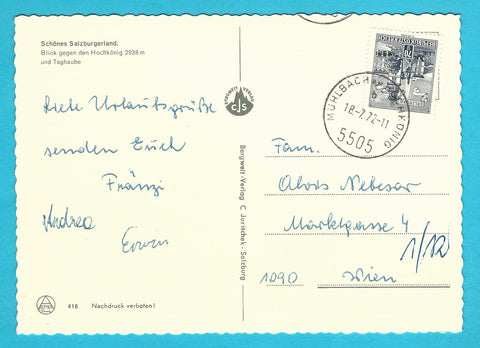 Schönes Salzburgerland.
Blick gegen den Hochkönig 2938 m
und Taghaube
Liebe Urlaubsgrüße
senden Euch
Fränzi
Andrea
Erwin
416 Nachdruck verboten!
BERGWELT VERLAG
cJs
Bergwelt-Verlag C. Jurischek - Salzburg
MÜHLBACH AM HOCHKÖNIG
b
18.-7.72-11
5505
REPUBLIK ÖSTERREICH
Fam.
Alois Nebesar
Marktgasse 4
1/12
1090 Wien